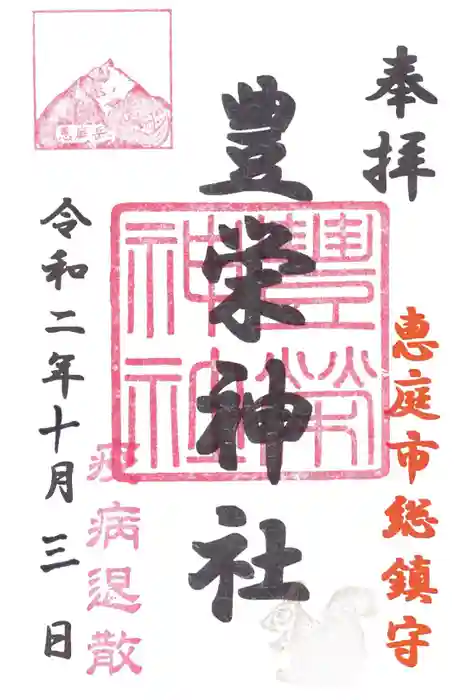 奉拝
恵庭市総鎮守
豊栄神社
豊榮神社
恵庭岳
疫病退散
令和二年十月三日